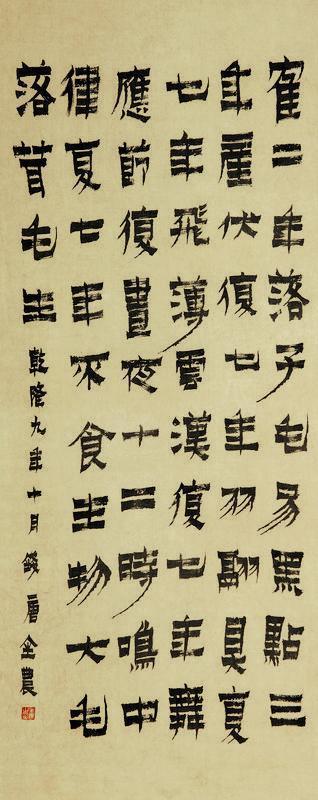 隺二年落子毛易黑點三
年產伏復七年羽翮具复
七年飛薄雲漢復七年舞
應節復晝夜十二時鳴中
律复七年不食生物大毛
落茸毛生
乾隆九年十月錢唐金農